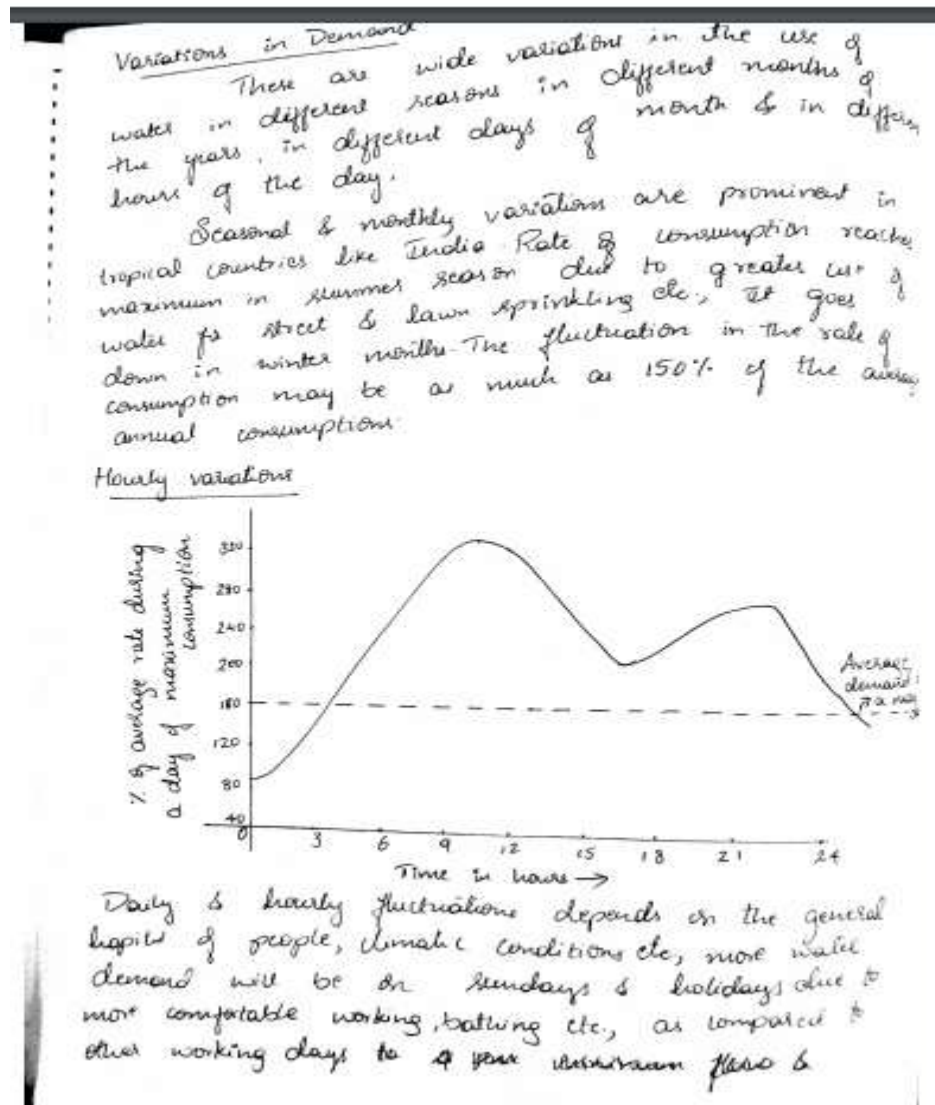 Variations in Demand
There are wide variations in the use of
water in different seasons in different months of
the years, in different days of month & in differen
hours of the day.
Seasonal & monthly variations are prominent in
tropical countries like India Rate of consumption reaches
maximum in summer season due to greater use of
water for street & lawn sprinkling etc., It goes
down in winter months. The fluctuation in the rate of
consumption may be as much as 150% of the average
annual consumptions.
Hourly variations
% of average rate during
a day of maximum
consumption
320
280
240
200
160
120
80
40
0 3 6 9 12 15 18 21 24
Time in hours →
Average
demand
Daily & hourly fluctuations depends on the general
habits of people, climatic conditions etc, more water
demand will be on sundays & holidays due to
more comfortable working, bathing etc., as compared to
other working days